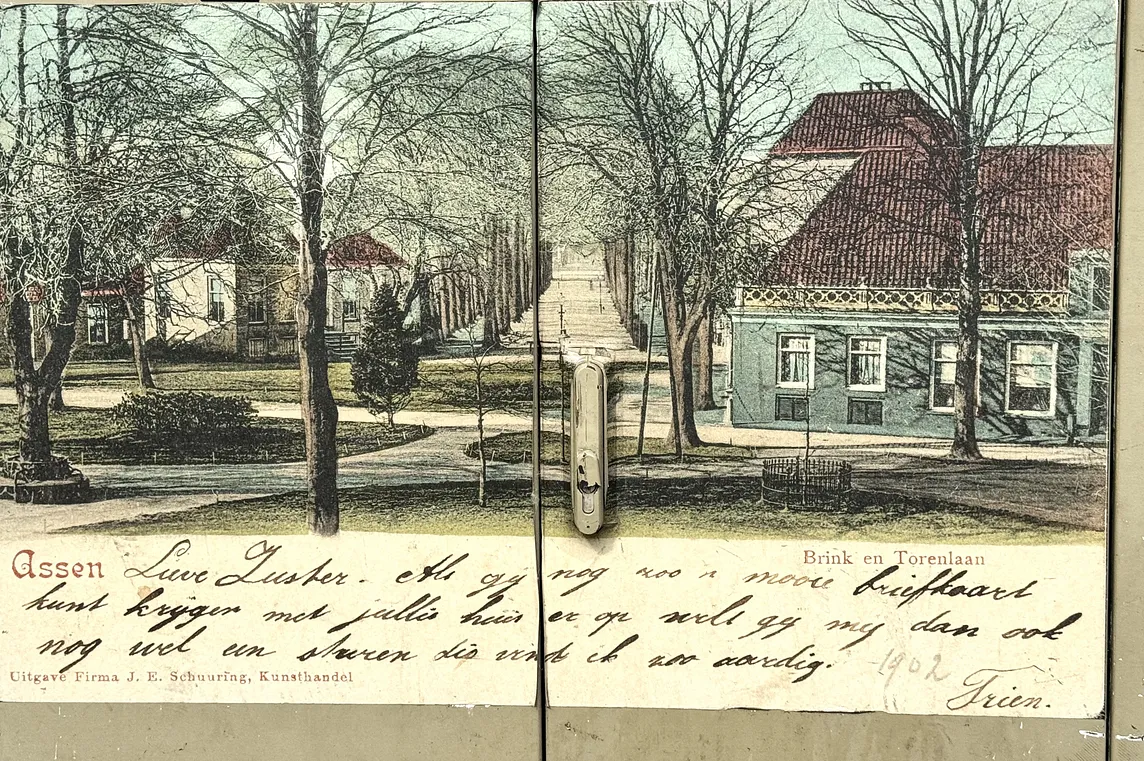 Assen
Brink en Torenlaan
Lieve Zuster. Als gy nog zoo n mooie briefkaart
kunt krygen met jullie huis er op wilt gy my dan ook
nog wel een sturen die vind ik zoo aardig.
1902
Trien.
Uitgave Firma J. E. Schuuring, Kunsthandel